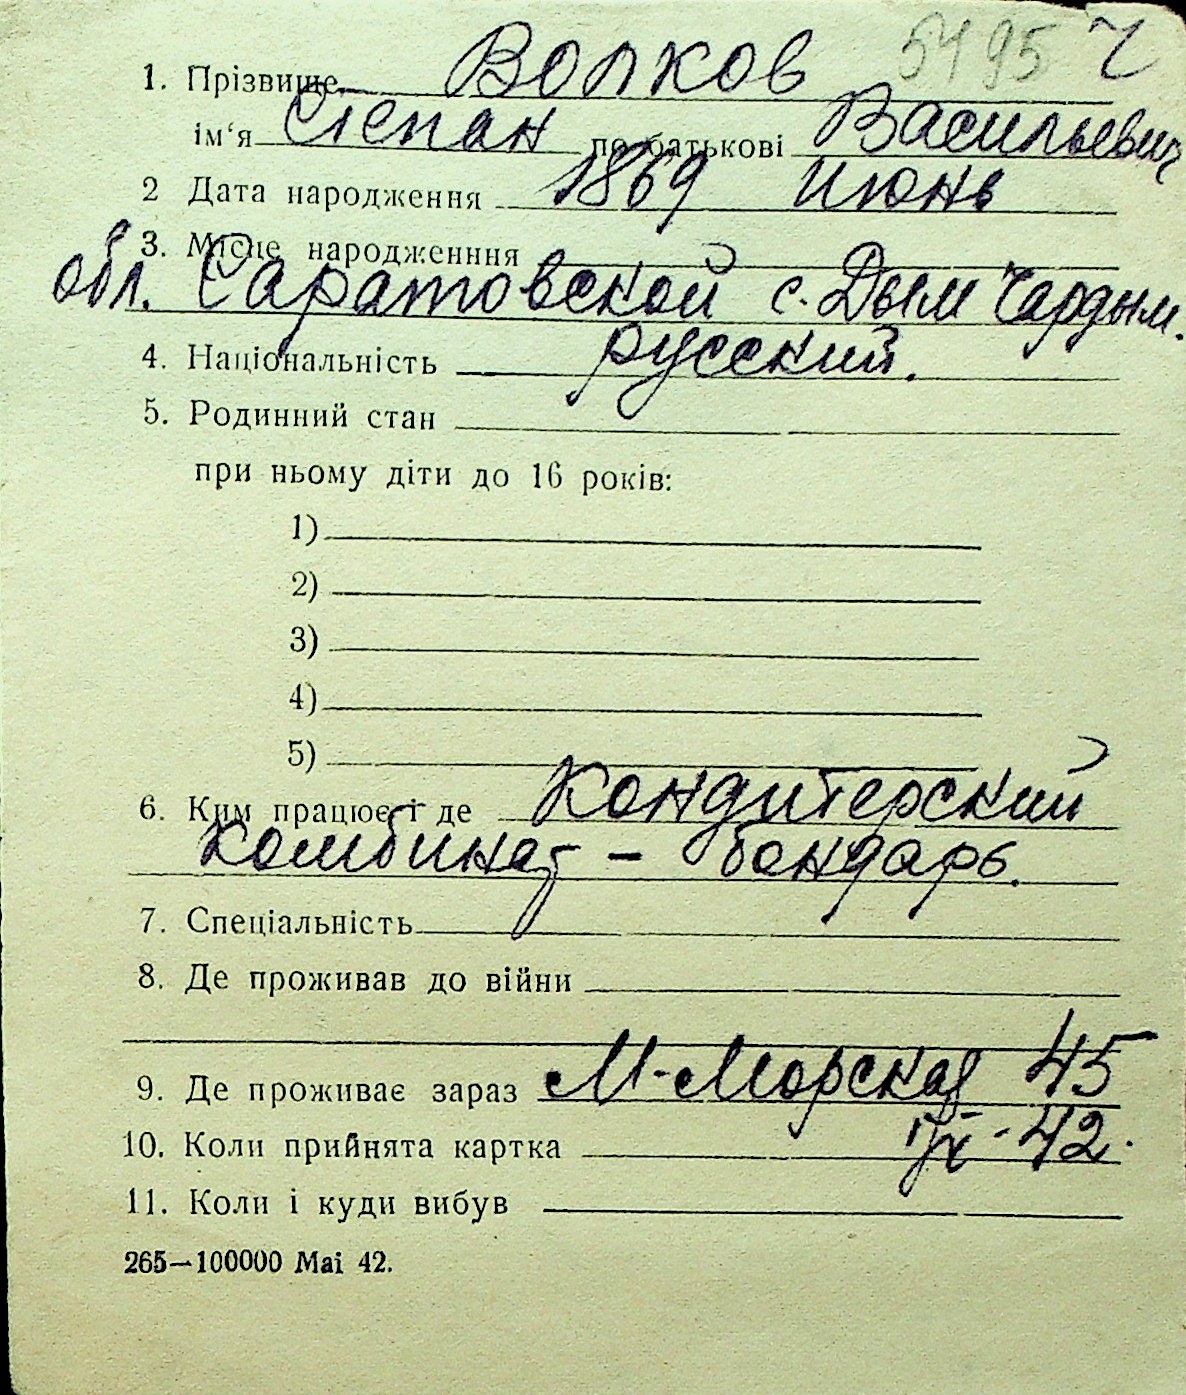 5495 ч
1. Прізвище Волков
ім‘я Степан по батькові Васильевич
2 Дата народження 1869 июнь
3. Місце народженння
обл. Саратовской с. Дым Чардым.
4. Національність русский.
5. Родинний стан
при ньому діти до 16 років:
1)
2)
3)
4)
5)
6. Ким працює і де Кондитерский
комбинат – бондарь.
7. Спеціальність
8. Де проживав до війни
9. Де проживає зараз М-Морская 45
10. Коли прийнята картка 42.
11. Коли і куди вибув
265—100000 Mai 42.